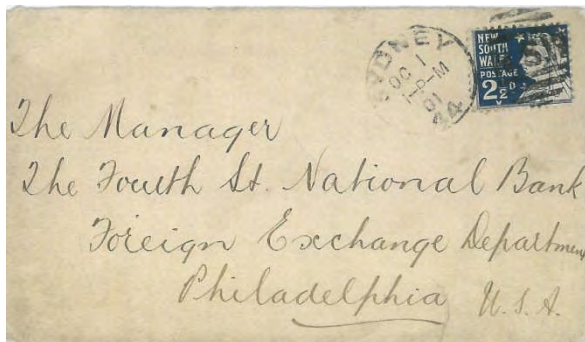 SYDNEY
OC 1
-P-M
01
44
NEW
SOUTH
WALES
POSTAGE
2½D
The Manager
The Fourth St. National Bank
Foreign Exchange Department
Philadelphia U.S.A.